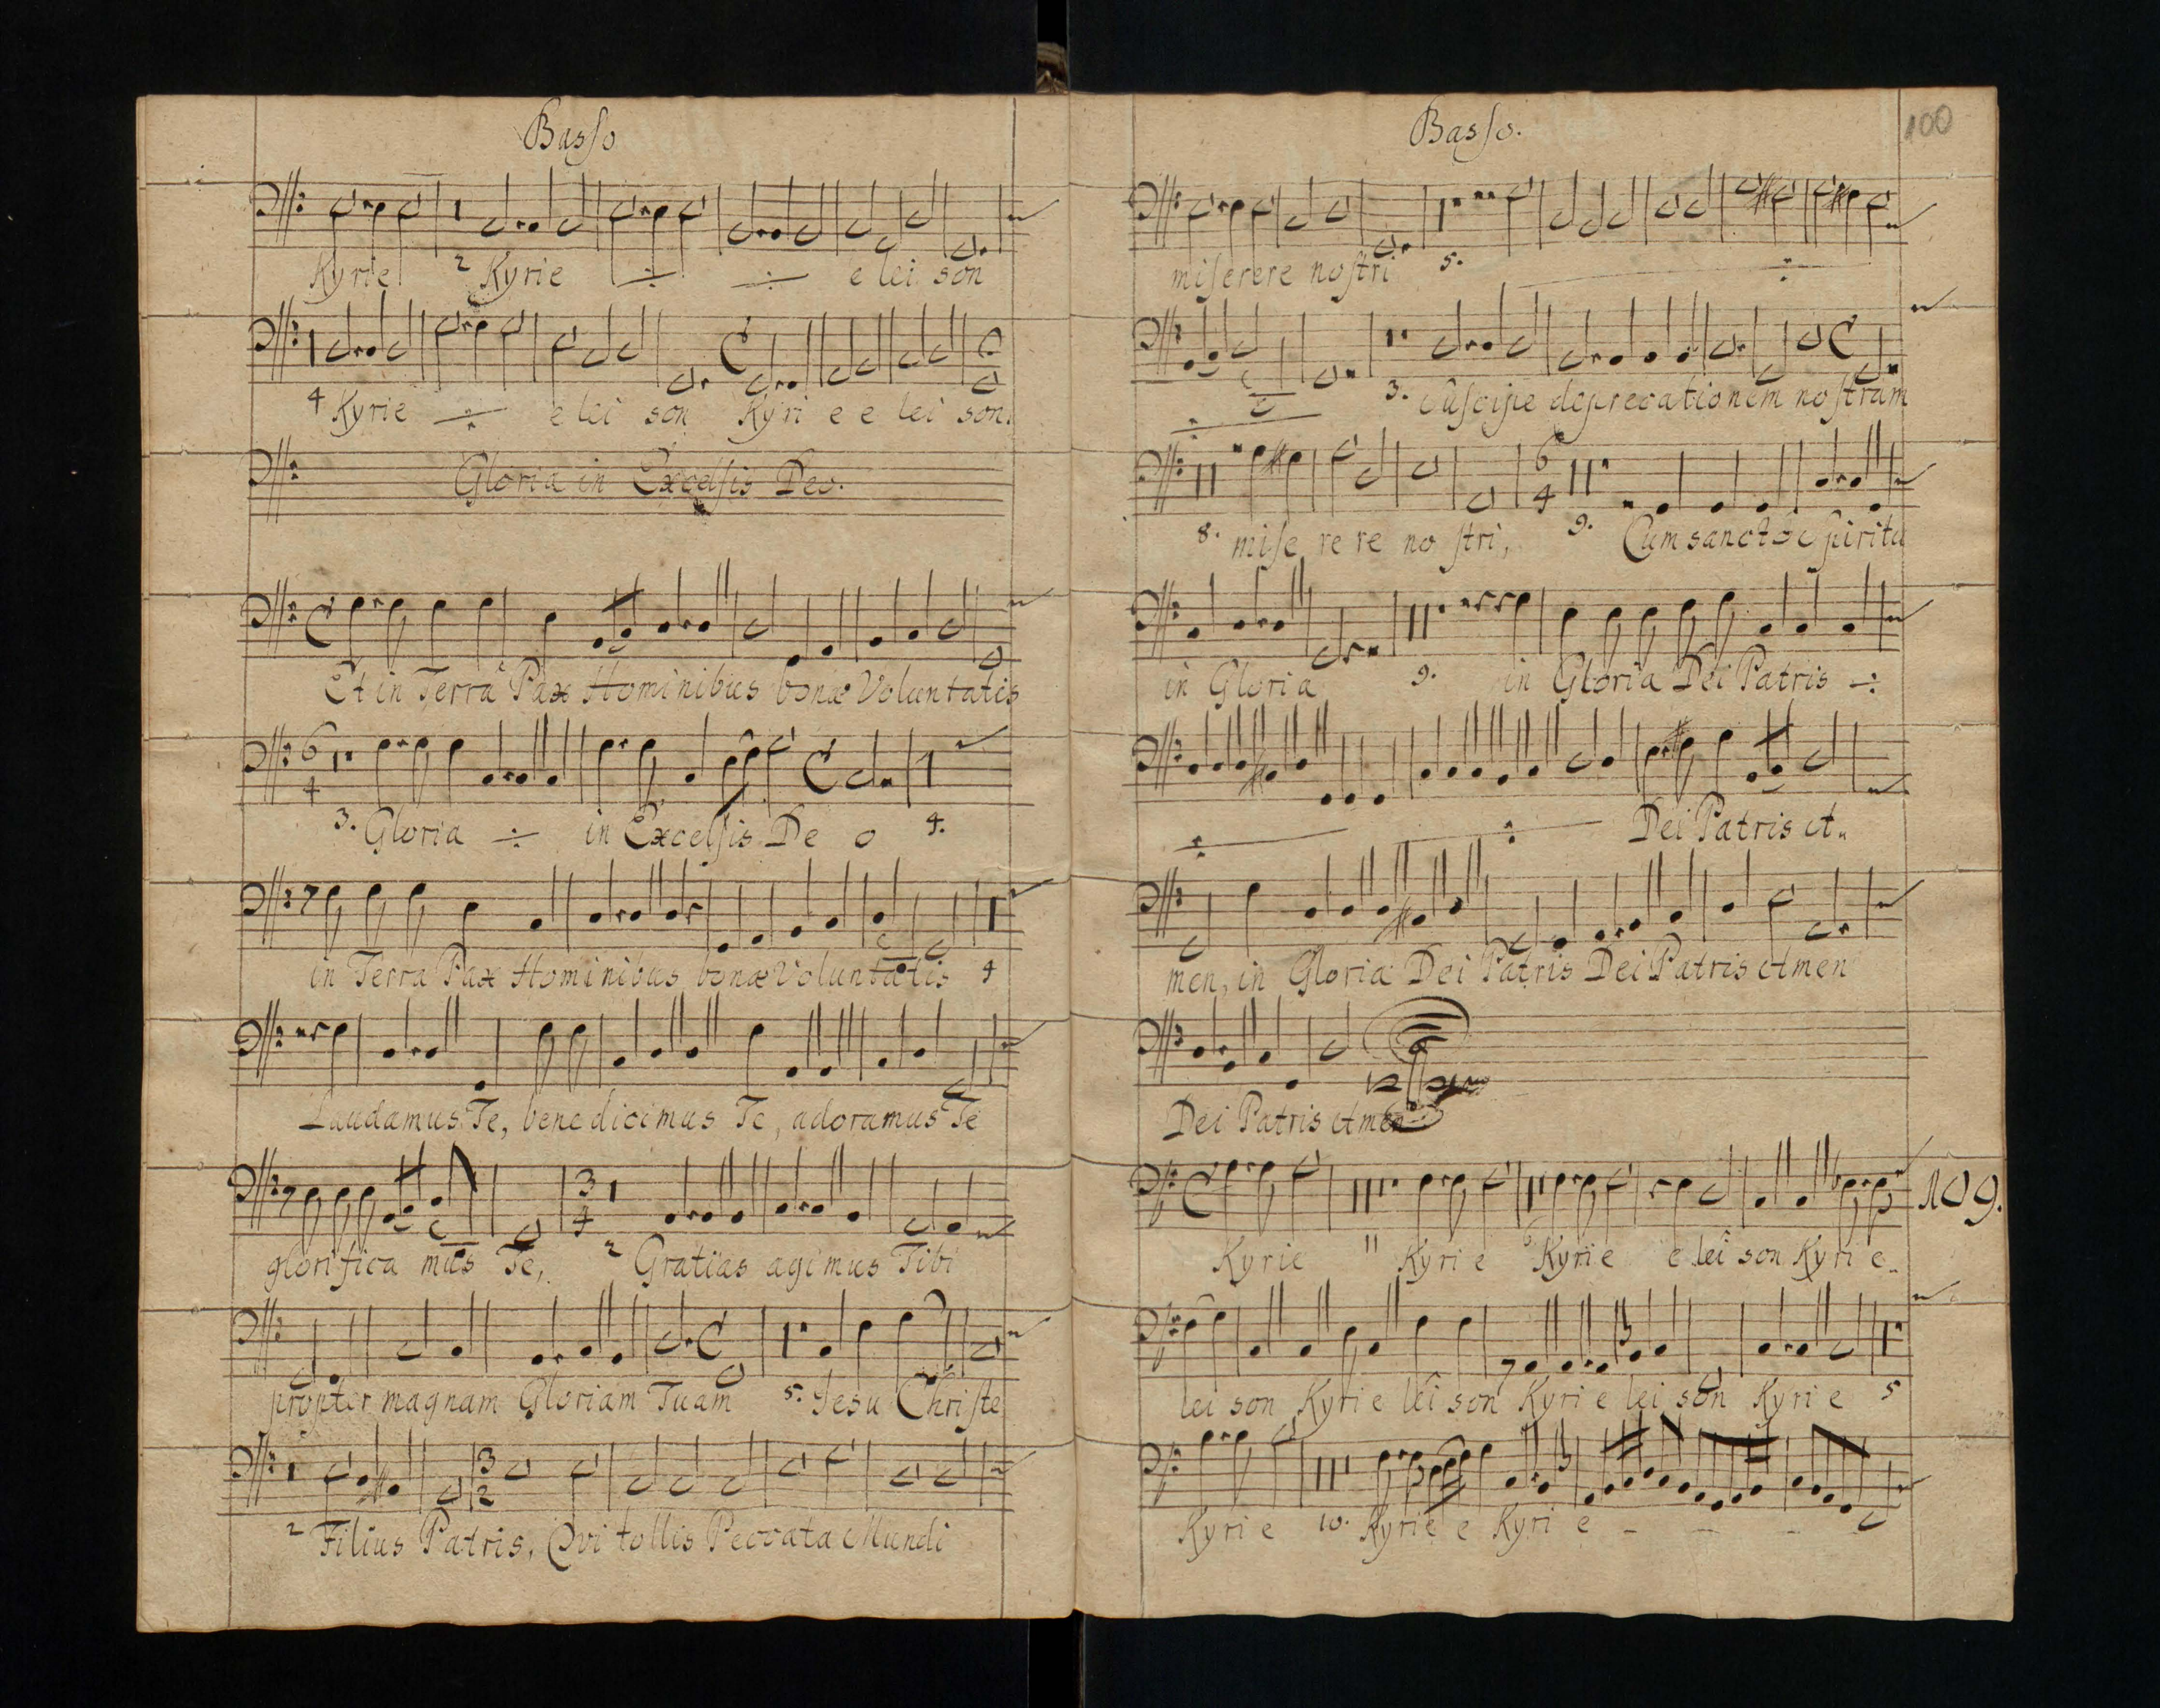 Basso
Kyrie 2 Kyrie ÷ ÷ e lei son
4 Kyrie ÷ e lei son Kyri e e lei son.
Gloria in Excelsis Deo.
Et in Terra Pax Hominibus bonæ Voluntatis
6
4
3. Gloria ÷ in Excelsis De o 4.
in Terra Pax Hominibus bonæ Voluntatis 4
Laudamus Te, benedicimus Te, adoramus Te
3
4
glorifica mus Te, 2 Gratias agimus Tibi
propter magnam Gloriam Tuam 5. Jesu Christe
3
2
2 Filius Patris, Qvi tollis Peccata Mundi
Basso.
100
miserere nostri 5. ÷
÷ 3. Suscipe deprecationem nostram
6
4
8. mise re re no stri, 9. Cum sancto Spiritu
in Gloria 9. in Gloria Dei Patris ÷
÷ ÷ Dei Patris A
men, in Gloria Dei Patris Dei Patris Amen
Dei Patris Amen
109.
Kyrie 11 Kyri e 6 Kyrie e lei son Kyri e
lei son Kyri e lei son Kyri e lei son Kyri e 5
Kyri e 10. Kyrie e Kyri e - - -